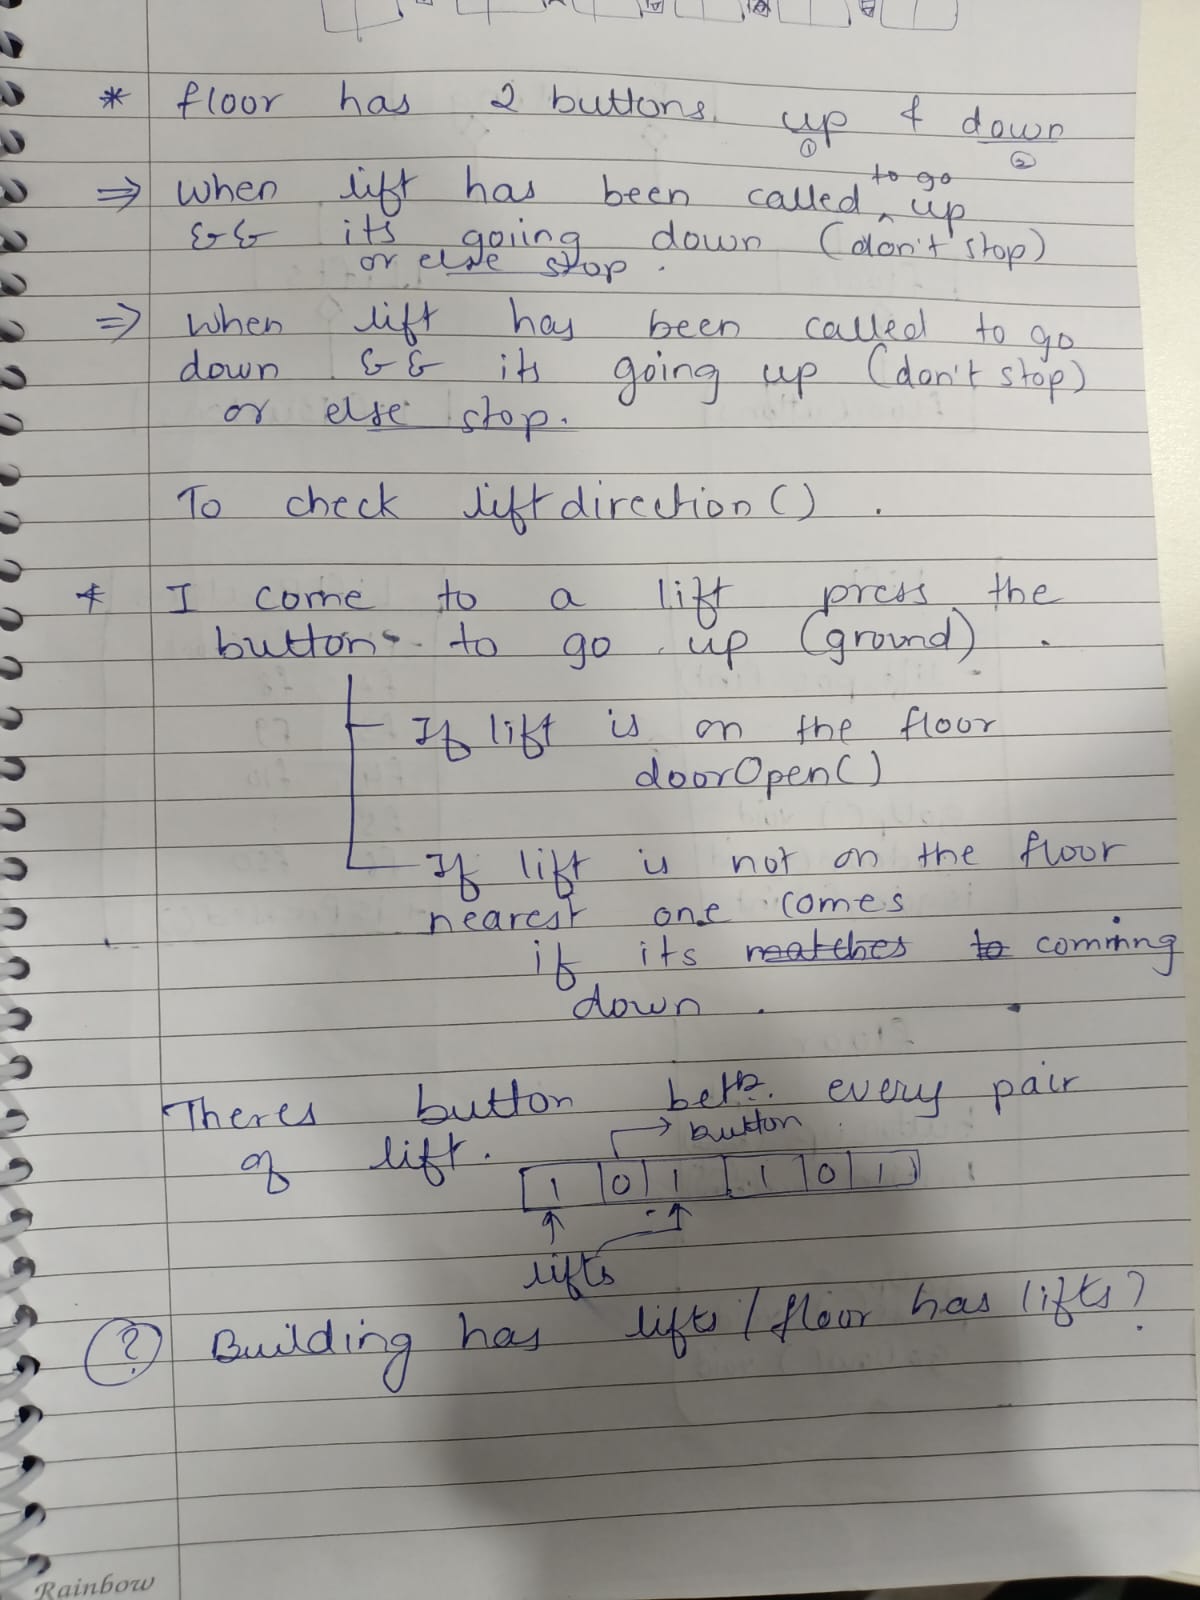 * floor has 2 buttons. up & down
① ②
⇒ When lift has been called to go up
&& its goiing down (don't stop)
or else stop.
⇒ When lift has been called to go
down && its going up (don't stop)
or else stop.
To check liftdirection().
* I come to a lift press the
button to go up (ground).
If lift is on the floor
doorOpen()
If lift is not on the floor
nearest one comes
if its matches to commng
down.
Theres button betn. every pair
of lift.
button
1 0 1 1 0 1
lifts
? Building has lifts / floor has lifts?
Rainbow